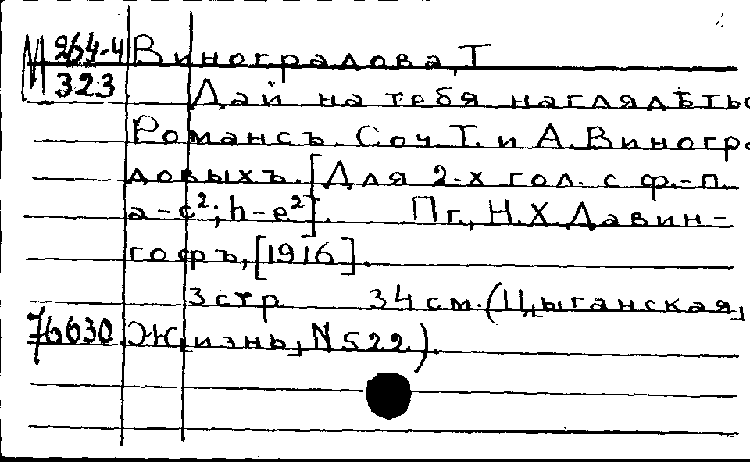 М 264-4 Виноградова, Т
323 Дай на тебя наглядѣтьс
Романсъ. Соч. Т. и А. Виногра
довыхъ. [Для 2-х гол. с ф.-п.
a-c²; h-e²]. Пг., Н. Х. Давин-
гофъ, [1916].
3 стр 34 см. (Цыганская
76630 Жизнь, N 522).